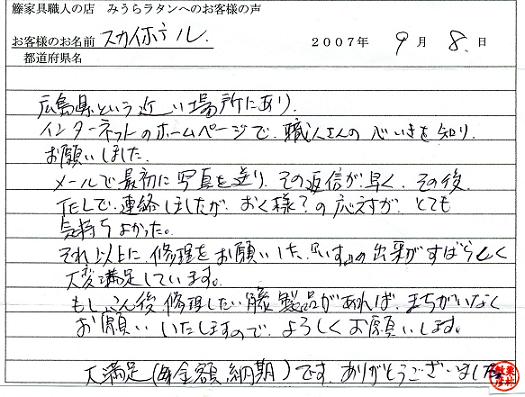 籐家具職人の店 みうらラタンへのお客様の声
お客様のお名前 スカイホテル. 2007年 9月 8日
都道府県名
広島県という近い場所にあり、
インターネットのホームページで、職人さんの心いきを知り、
お願いしました。
メールで最初に写真を送り、その返信が早く、その後、
TELで、連絡しましたが、おく様?の応えすが、とても
気持ちよかった。
それ以上に、修理をお願いした、いすの出来がすばらしく
大変満足しています。
もし、こん後、修理したい籐製品があれば、まちがいなく
お願いいたしますので、よろしくお願いします。
大満足(金額、納期)です。ありがとうございました